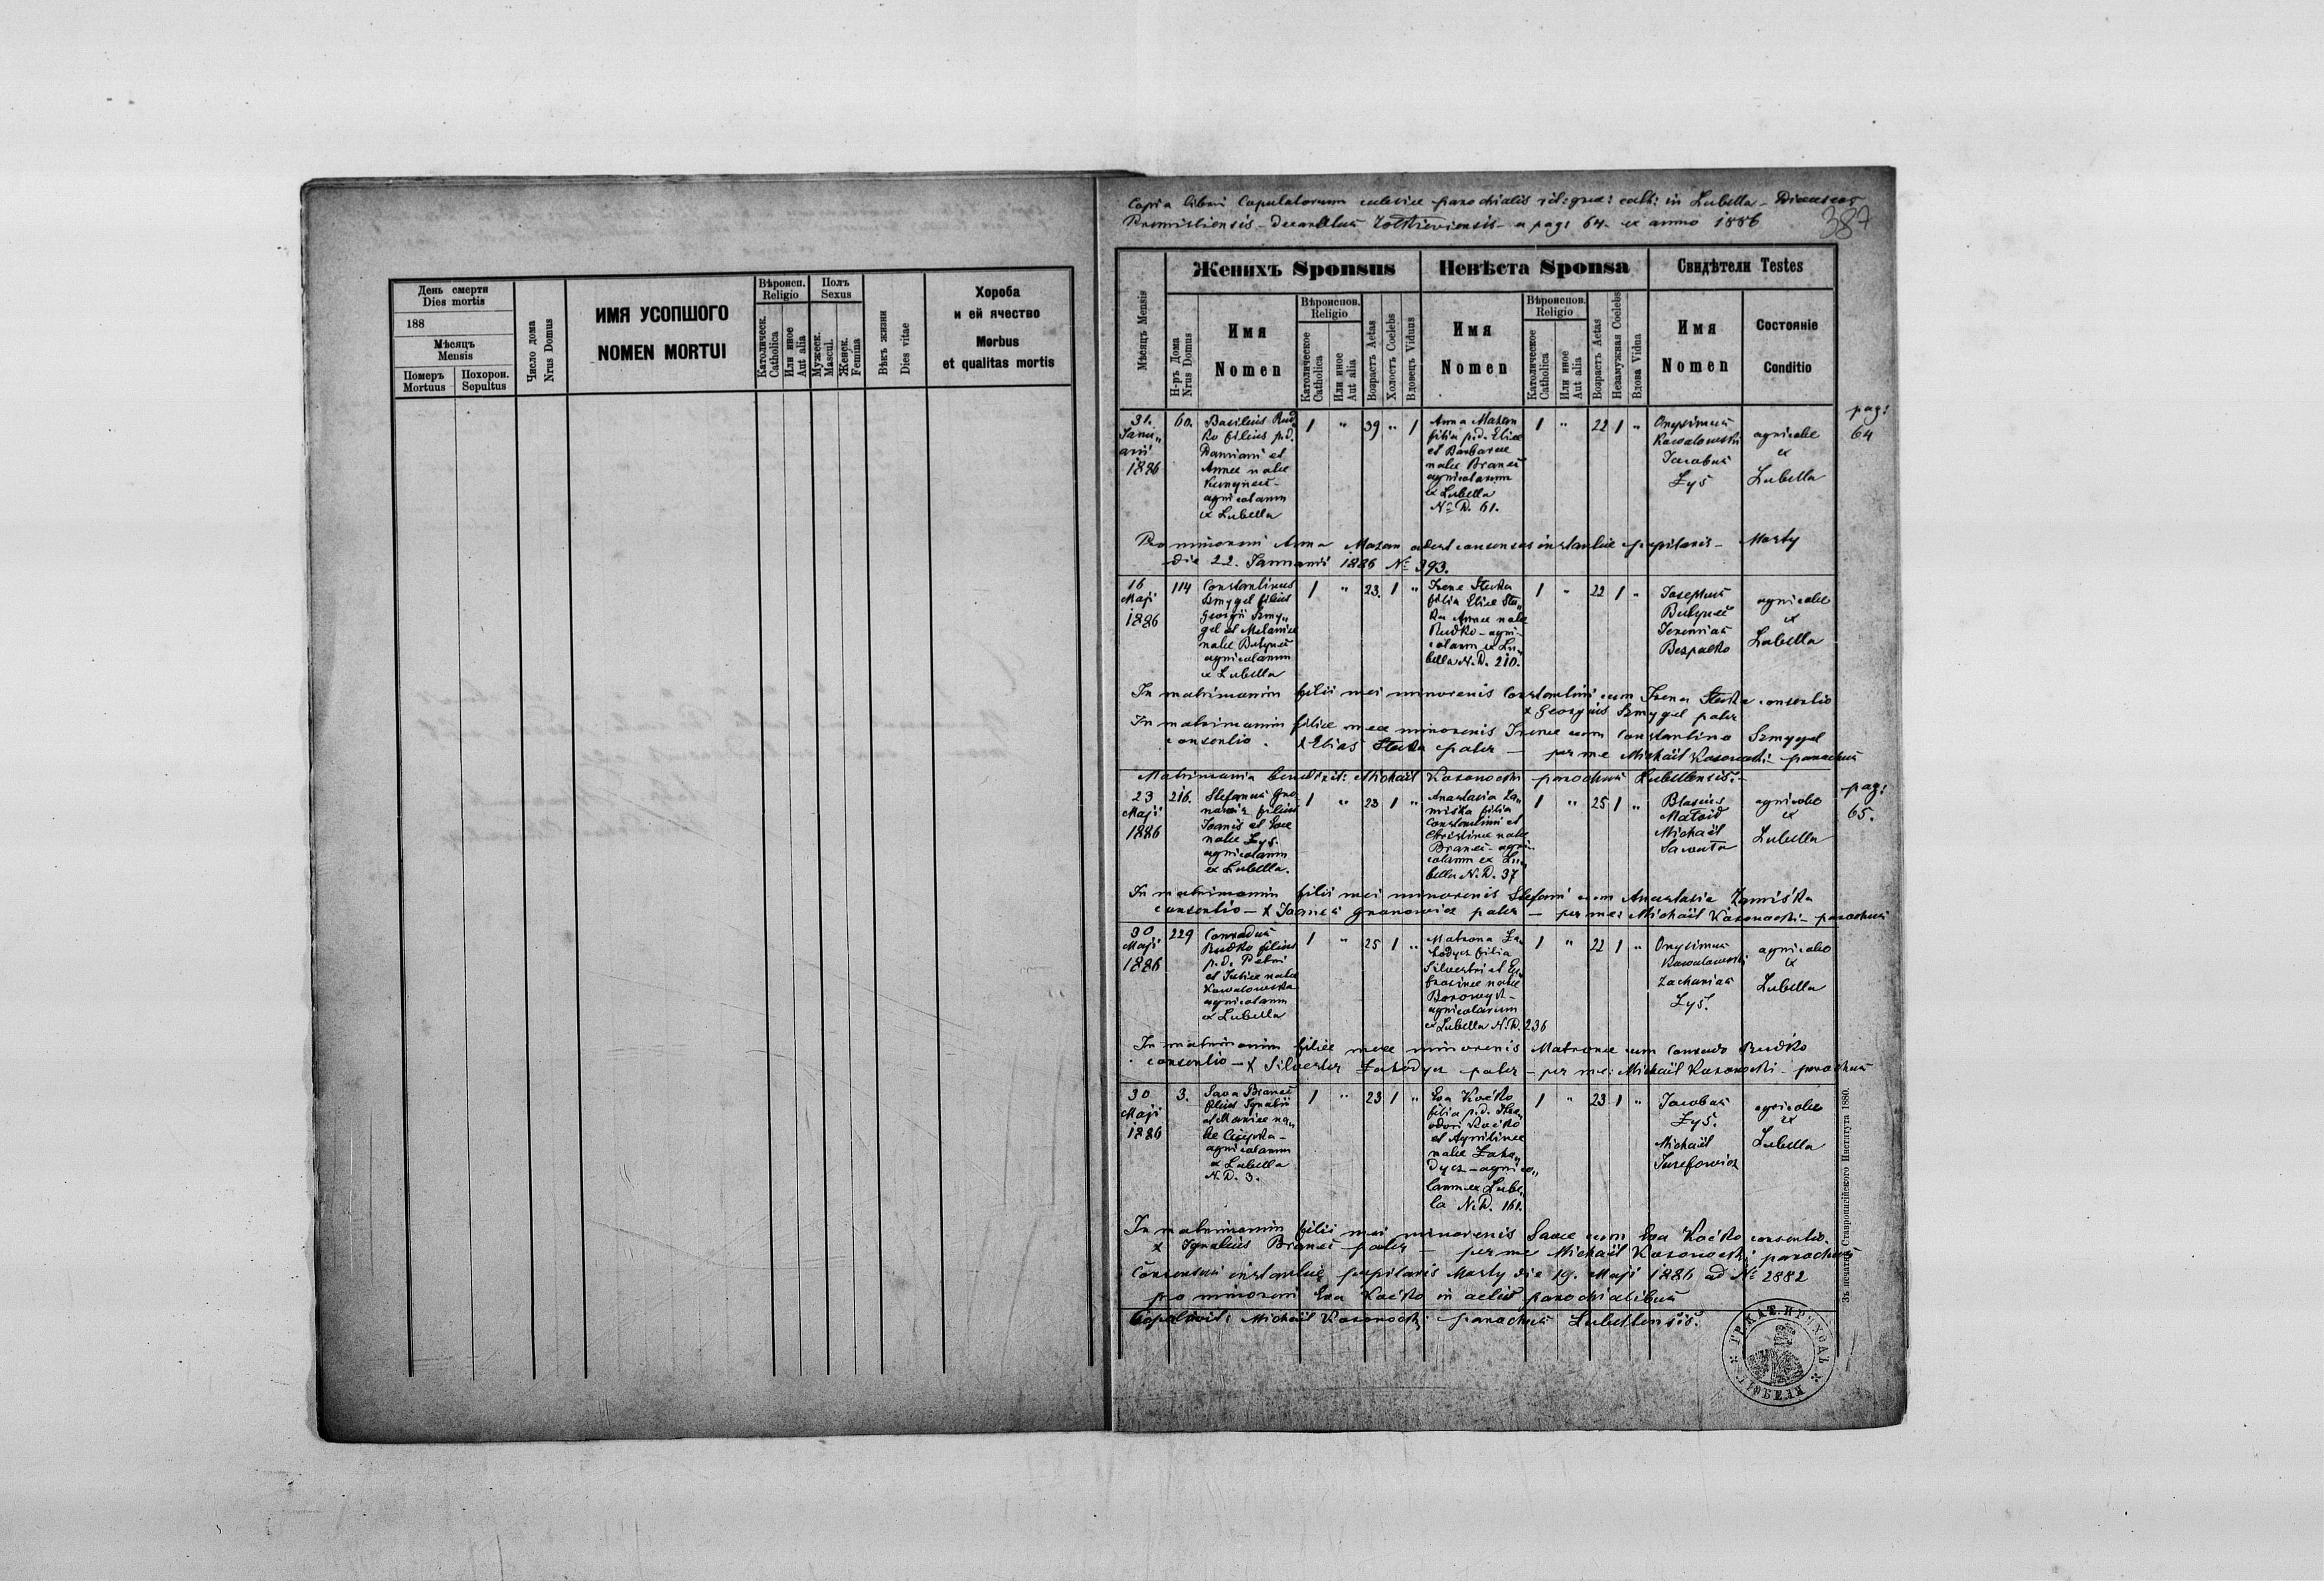 День смерти
Dies mortis
188
Мѣсяцъ
Mensis
Померъ
Mortuus
Похорон.
Sepultus
Число дома
Nrus Domus
ИМЯ УСОПШОГО
NOMEN MORTUI
Вѣроисп.
Religio
Католическ.
Catholica
Или иное
Aut alia
Полъ
Sexus
Мужеск.
Mascul.
Женск.
Femina
Вѣкъ жизни
Dies vitae
Хороба
и ей ячество
Morbus
et qualitas mortis
Copia libri Copulatorum eclesiae parochialis rit: graec: cath: in Lubella - Dioeceseos
Premisliensis - Decanatus Zolkieviensis - a pag: 64. ex anno 1886
387
Мѣсяцъ Mensis
Женихъ Sponsus
Невѣста Sponsa
Свидѣтели Testes
Н-ръ Дома
Nrus Domus
Имя
Nomen
Вѣроиспов.
Religio
Католическое
Catholica
Или иное
Aut alia
Возрастъ Aetas
Холостъ Coelebs
Вдовецъ Viduus
Имя
Nomen
Вѣроиспов.
Religio
Католическое
Catholica
Или иное
Aut alia
Возрастъ Aetas
Незамужная Coelebs
Вдова Vidua
Имя
Nomen
Состояніе
Conditio
31.
Janu„
arii
1886
60.
Basilius Rud„
ko filius p.d.
Damiani et
Annae natae
agricolarum
ex Lubella
1 " 39 " 1
Anna Mazan
filia p.d. Eliae
et Barbarae
natae Braneć
agricolarum
ex Lubella
No D. 61.
1 " 22 1 "
Onysimus
Kowalowski
Jacobus
Łyś
agricolae
ex
Lubella
pag:
64
Pro minoreni Anna Mazan adest consensus instantiae pupilaris - Mosty
die 22. Januarii 1886 No 393.
16
Maji
1886
114
Constantinus
Szmygel filius
Georgii Szmy„
gel et Melaniae
natae Butyneć
agricolarum
ex Lubella
1 " 23. 1 "
Irene
filia Eliae
Annae natae
Rudko - agri-
colarum ex Lu„
bella N.D. 210.
1 " 22 1 "
Josephus
Butyneć
Jeremias
Bezpalko
agricolae
ex
Lubella
In matrimonium filii mei minorenis Constantini cum Irena consentio
x Georgius Szmygel pater
In matrimonium filiae meae minorenis Irenae cum Constantino Szmygel
consentio. x Elias pater — per me Michaël Kosonocki - parochus
Matrimonia benedixit: Michaël Kosonocki parochus Lubellensis. -
23
Maji
1886
216.
Stefanus Gra„
nowicz filius
Joanis et Evae
natae Łyś.
agricolarum
ex Lubella.
1 " 23 1 "
Anastasia Za„
miśka filia
Constantini et
Christinae natae
Braneć - agri-
colarum ex Lu„
bella N.D. 37
1 " 25 1 "
Blasius
Matwid
Michaël
Sawuła
agricolae
ex
Lubella
pag:
65.
In matrimonium filii mei minorenis Stefani cum Anastasia Zamiśka
consentio — x Joanes Granowicz pater — per me: Michaël Kosonocki - parochus
30
Maji
1886
229
Conradus
Rudko filius
p.d. Petri
et Juliae natae
Kowalowska
agricolarum
ex Lubella
1 " 25 1 "
Matrona Za„
hodycz filia
Silvestri et Eu„
frosinae natae
Borowyk -
agricolarum
ex Lubella N.D. 236
1 " 22 1 "
Onysimus
Kowalowski
Zacharias
Łyś.
agricolae
ex
Lubella
In matrimonium filiae meae minorenis Matronae cum Conrado Rudko
consentio — x Silvester Zahodycz pater - per me: Michaël Kosonocki - parochus
30
Maji
1886
3.
Sava Braneć
filius Ignatii
et Mariae na„
tae
agricolarum
ex Lubella
N.D. 3.
1 " 23 1 "
Eva Koćko
filia p.d. The„
odori Koćko
et Agripinae
natae Zaho„
dycz - agrico„
larum ex Lubel„
la N.D. 161.
1 " 23 1 "
Jacobus
Łyś.
Michaël
Jusefowicz
agricolae
ex
Lubella
In matrimonium filii mei minorenis Savae cum Eva Koćko consentio.
x Ignatius Braneć pater — per me Michaël Kosonocki parochus
Consensus instantiae pupilaris Mosty die 19. Maji 1886 ad No 2882
pro minoreni Eva Koćko in actis parochialibus
Copulavit: Michaël Kosonocki parochus Lubellensis.
Зъ печатни Ставропигійского Института 1880.